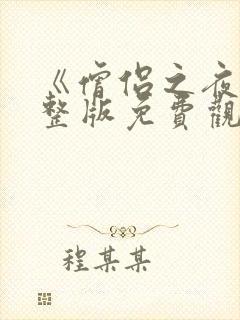 《僧侣之夜
整版免費觀
程某某